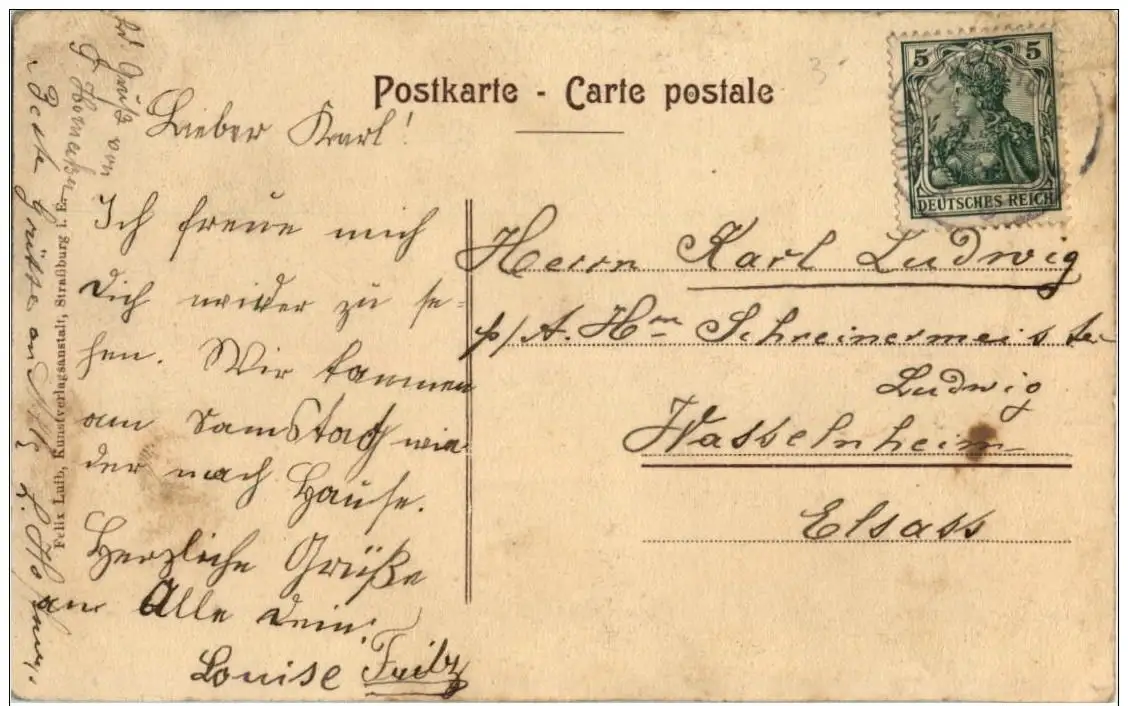 Postkarte - Carte postale
5 5
DEUTSCHES REICH
Lieber Karl!
Ich freue mich
Dich wider zu se-
hen. Wir kammen
am Samstag wie
der nach Hause.
Herzliche Grüße
an Alle Dein
Louise Fritz
Herrn Karl Ludwig
p/A. Hrn Schreinermeister
Ludwig
Wasselnheim
Elsass
Felix Luib, Kunstverlagsanstalt, Straßburg i. E.
Gruß von
Beste Grüße an